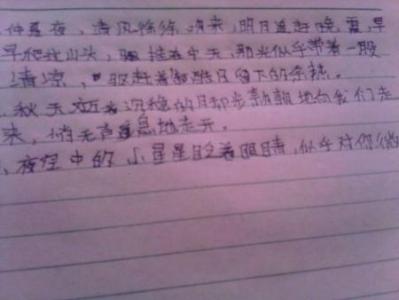 仲夏夜，清风徐徐吹来，明月追赶晚霞，早
早爬上山头，挂在中天，那光似乎带着一股
清凉，驱赶着留下的余热。
秋天迈着沉稳的月却步轻轻地向我们走
来，悄无声息地走开。
夜空中的小星星眨着眼睛，似乎对你微